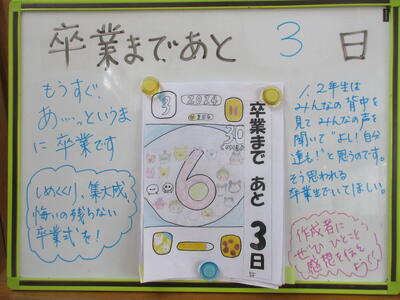 卒業まであと 3 日
もうすぐ、
あ…っというま
に 卒業です
しめくくり、集大成、
悔いの残らない
卒業式を!
3 2024
6
卒業まで あと 3日
1、2年生は
みんなの背中を
見てみんなの声を
聞いて"よし!自分
達も!"と思うのです。
そう思われる
卒業生でいてほしい。
作成者に
ぜひ ひとこと
感想を伝え